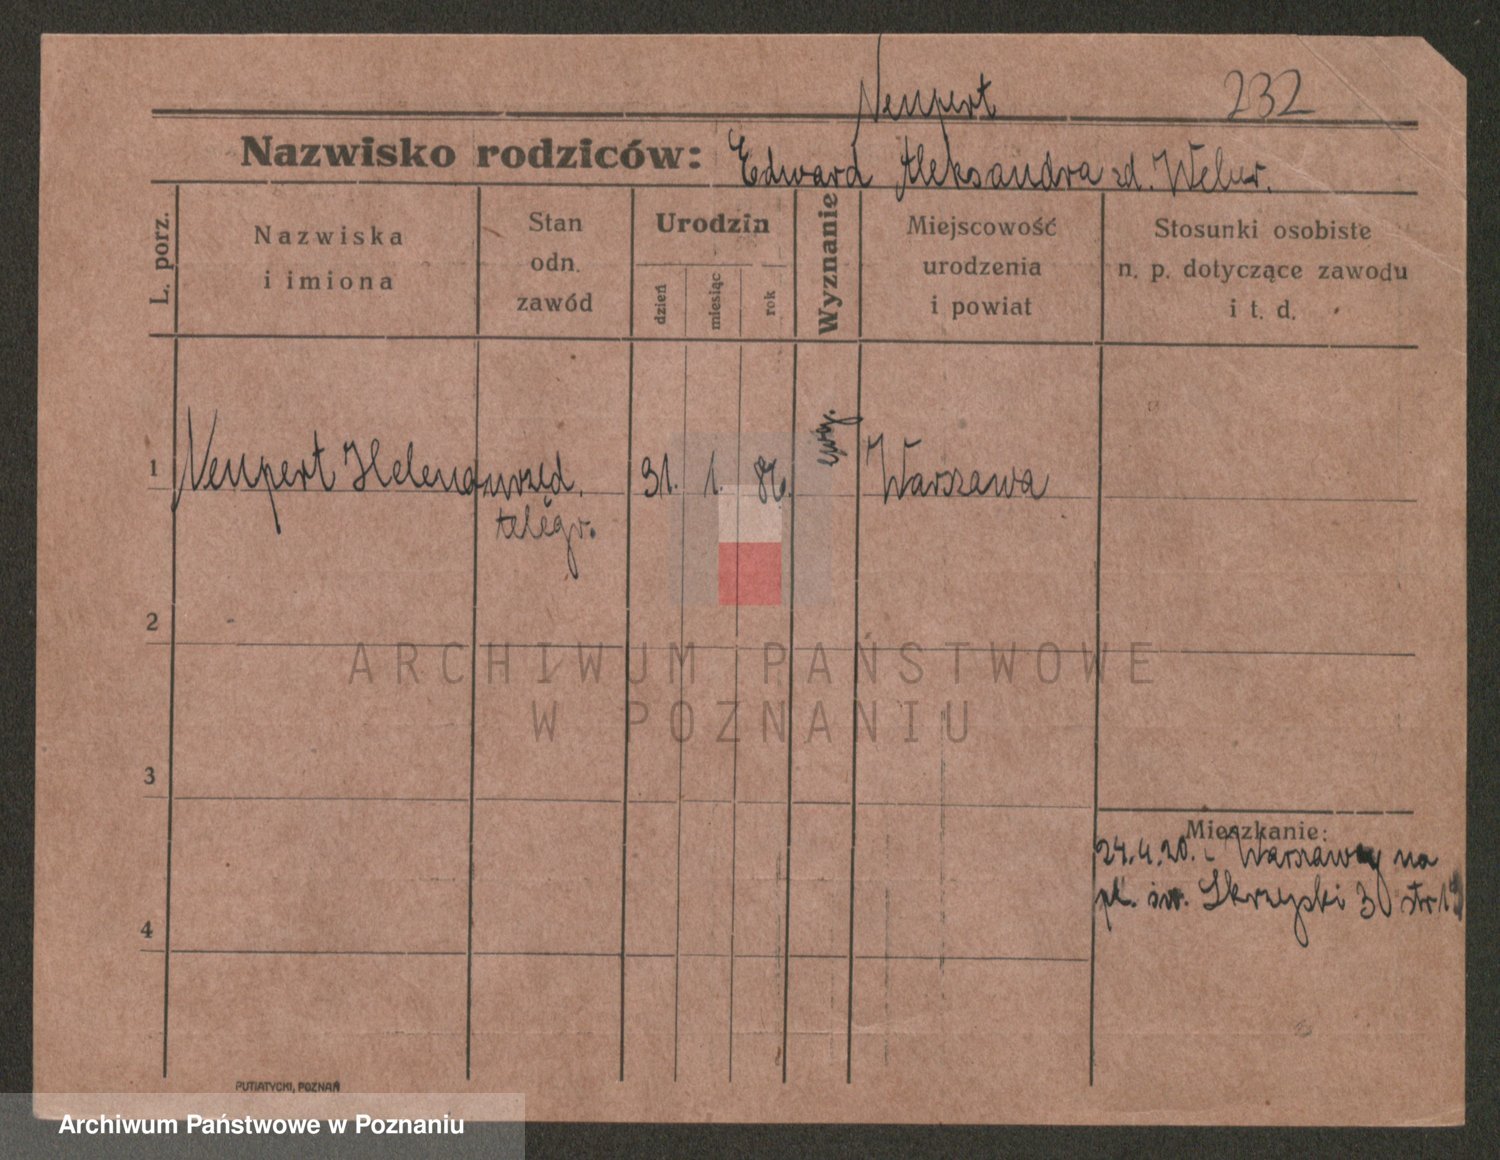 Neupert 232
Nazwisko rodziców: Edward Aleksandra zd.
L. porz.
Nazwiska
i imiona
Stan
odn.
zawód
Urodzin
dzień
miesiąc
rok
Wyznanie
Miejscowość
urodzenia
i powiat
Stosunki osobiste
n. p. dotyczące zawodu
i t. d.
1 Neupert Helena urzęd. 31. 1. Warszawa
telegr.
2
ARCHIWUM PAŃSTWOWE
W POZNANIU
3
Mieszkanie:
24.4.20. Warszawy na
pl. św. Skrzypski 3 str
4
PUTIATYCKI, POZNAŃ
Archiwum Państwowe w Poznaniu